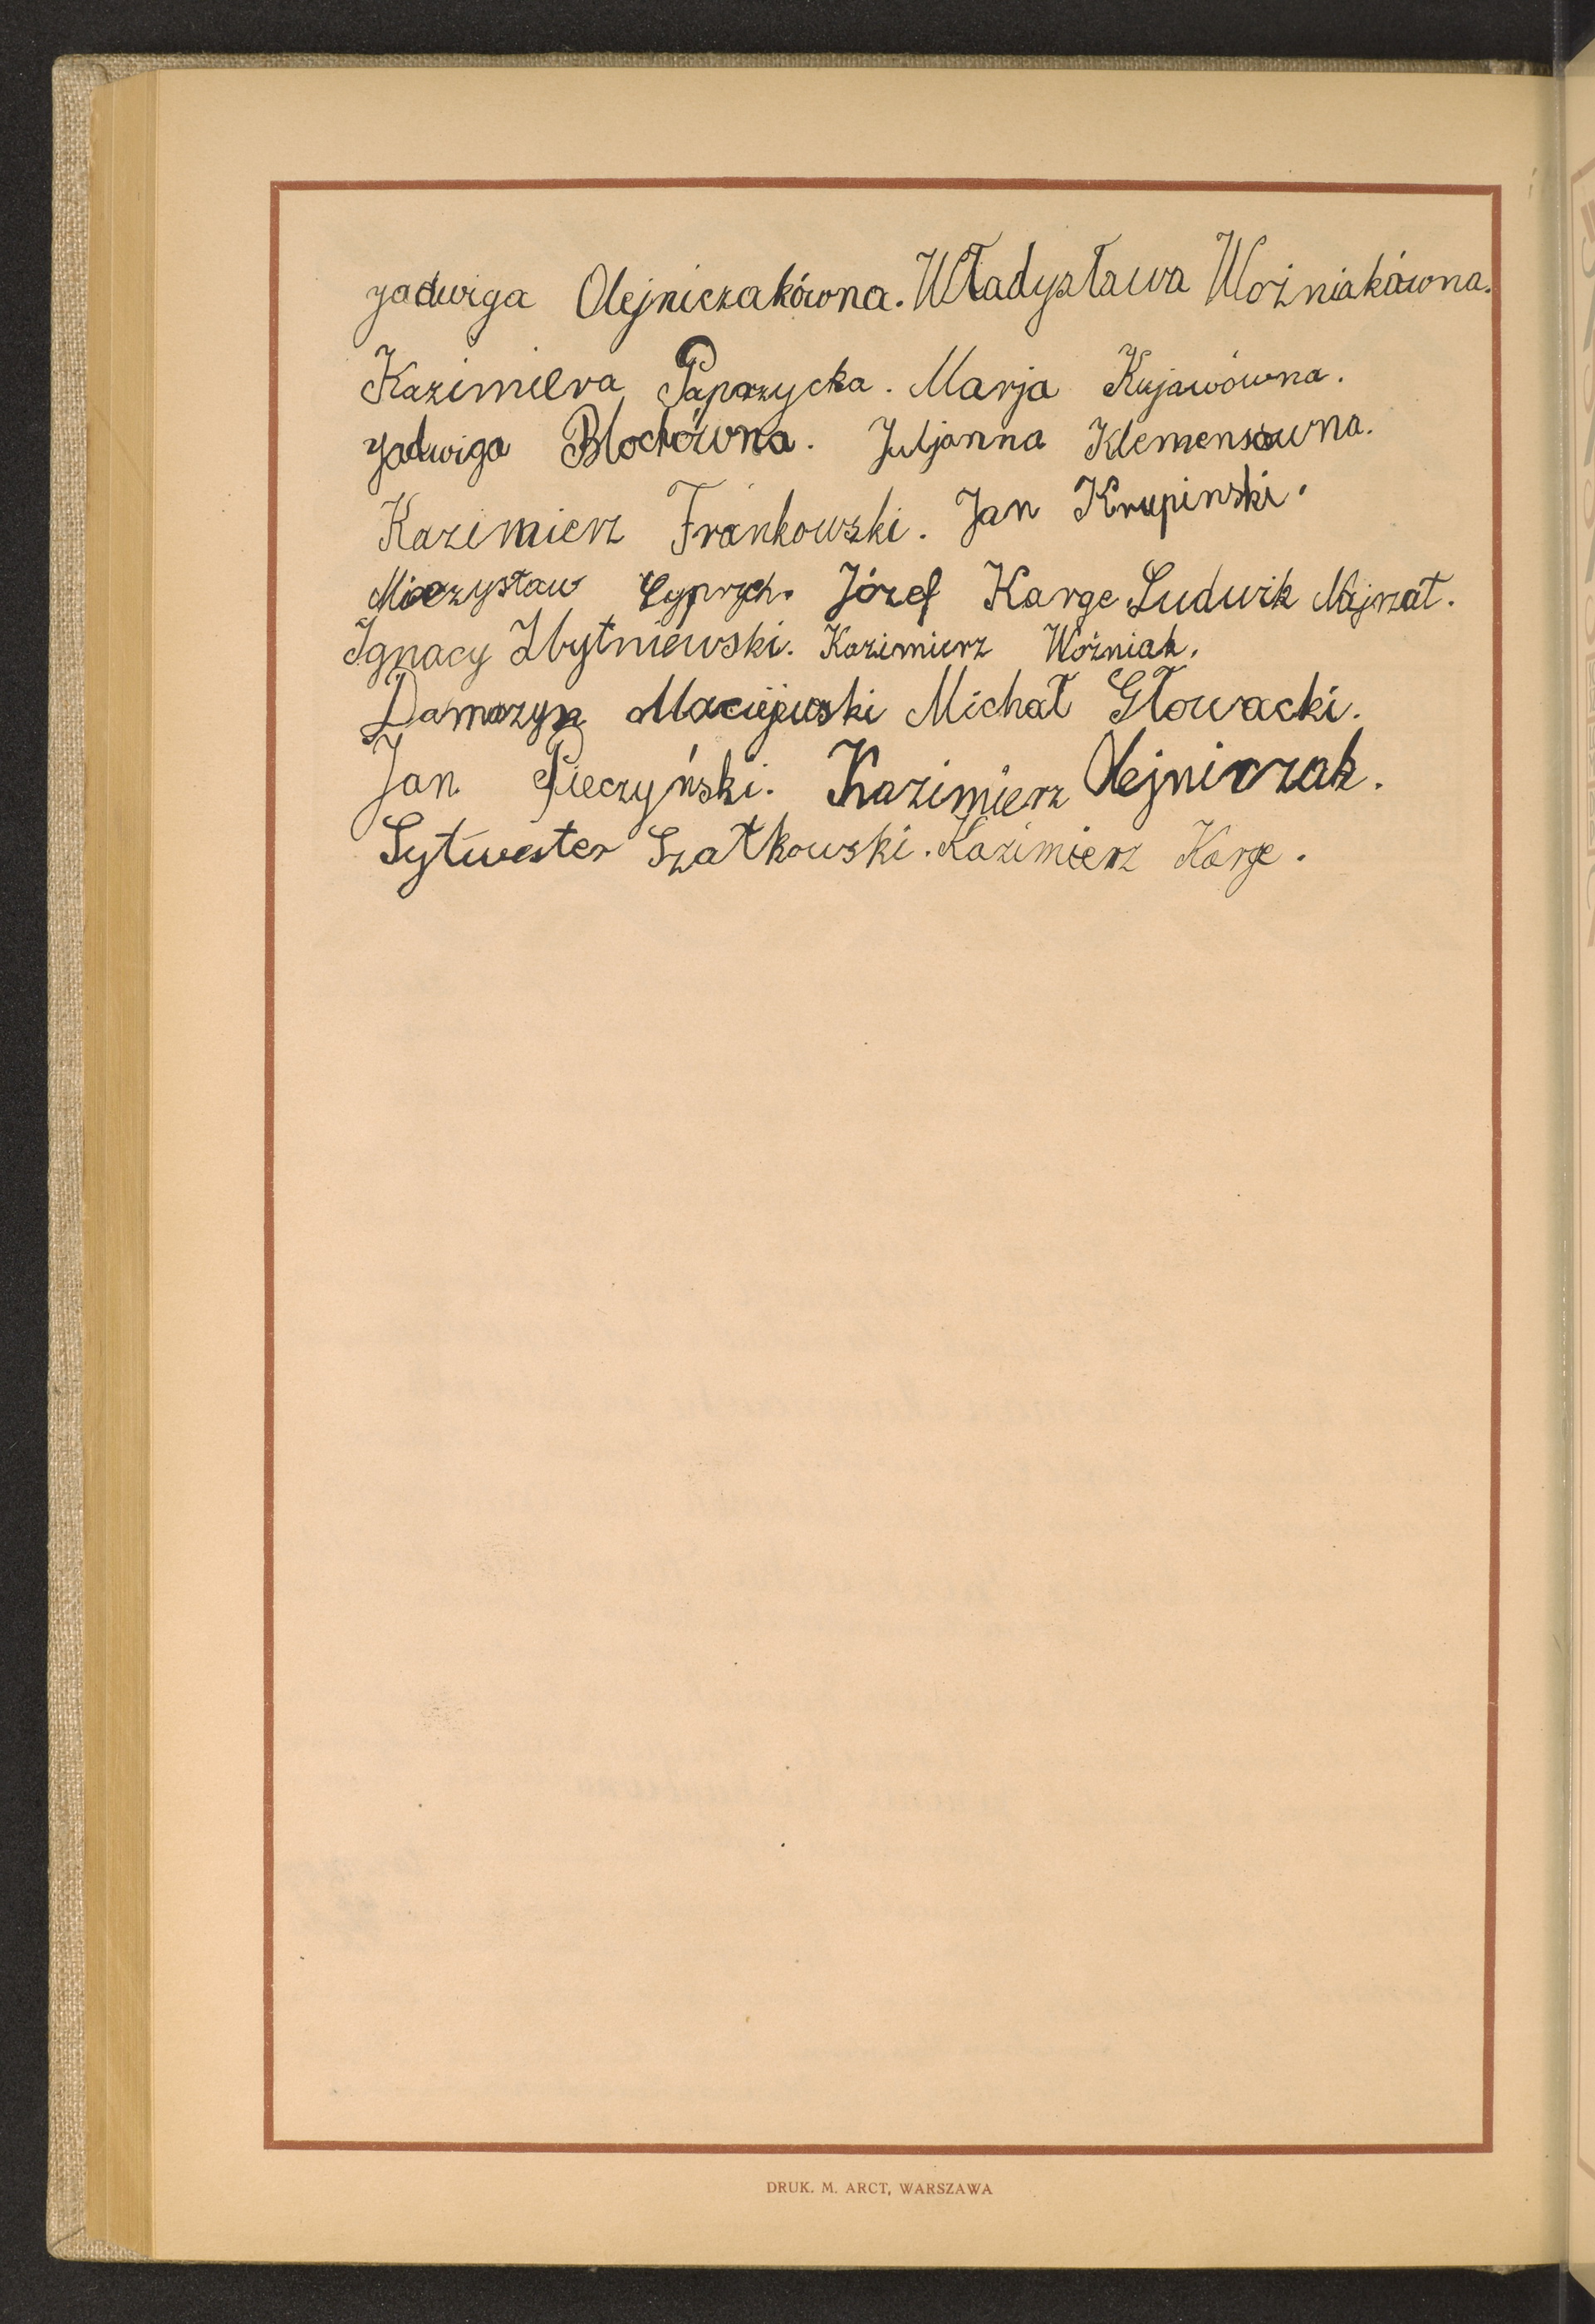 Jadwiga Olejniczakówna. Władysława Woźniakówna.
Kazimiera Paprzycka. Marja Kujawówna.
Jadwiga Blochówna. Juljanna Klemensówna.
Kazimierz Frankowski. Jan Krupinski.
Mieczysław Cyprych. Józef Karge Ludwik
Ignacy Zbytniewski. Kazimierz Woźniak.
Damazyn Maciejewski Michał Głowacki.
Jan Pieczyński. Kazimierz Olejniczak.
Sytwester Szatkowski. Kazimierz Karge.
DRUK. M. ARCT, WARSZAWA